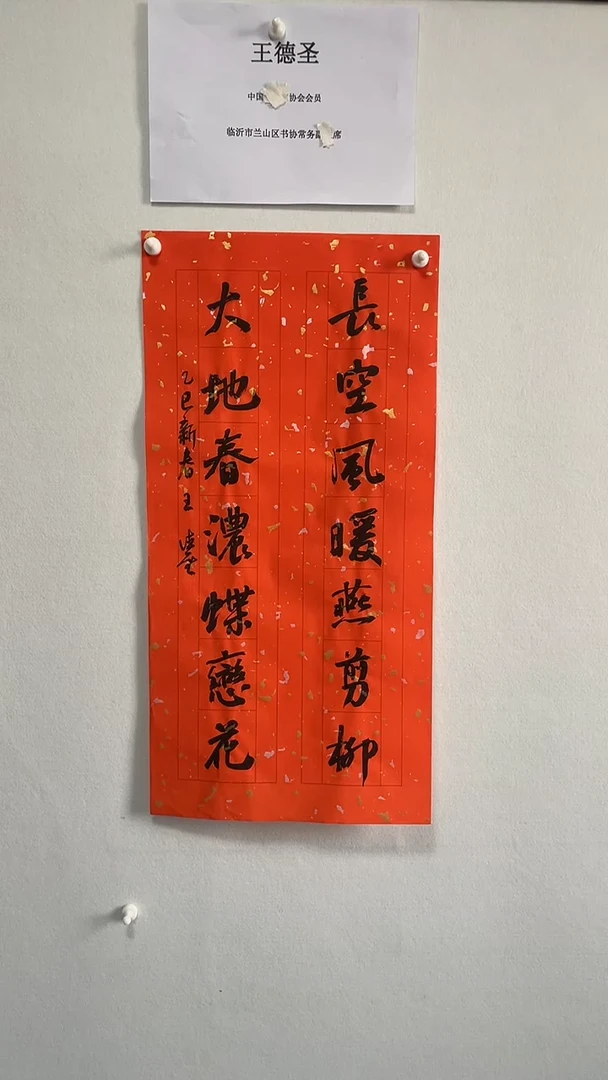 王德圣
中国 协会会员
临沂市兰山区书协常务副 席
長空風暖燕剪柳
大地春濃蝶戀花
乙巳新春王德聖